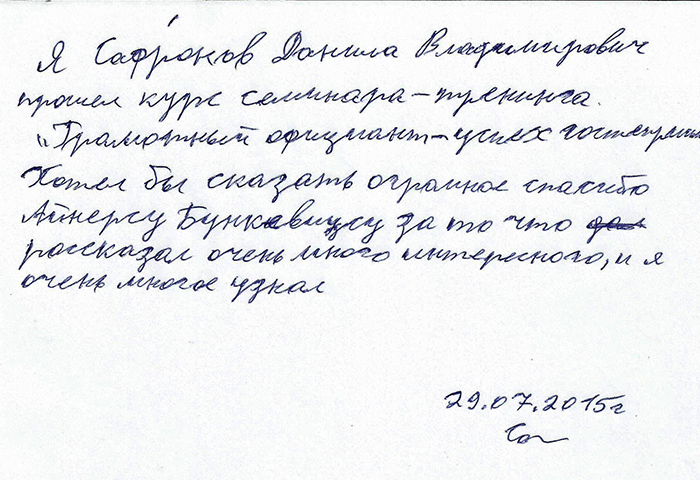 Я Сафронов Данила Владимирович
прошел курс семинара-тренинга.
„Грамотный официант-успех гостеприим
Хотел бы сказать огромное спасибо
Айнерсу Бункевицсу за то что
рассказал очень много интересного, и я
очень многое узнал
29.07.2015г